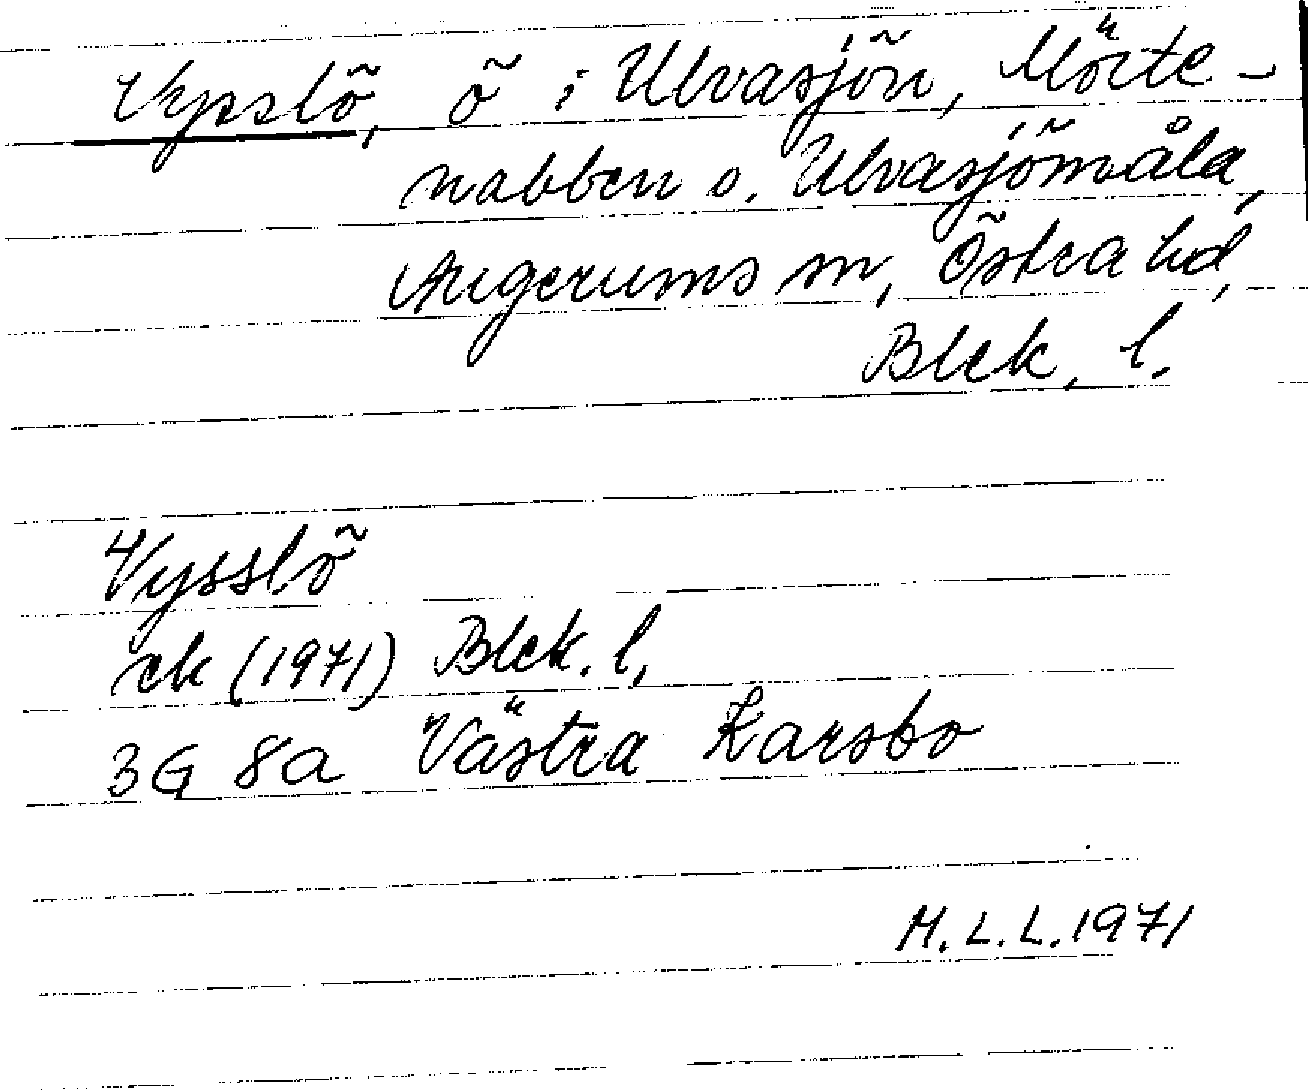 Vysslö, ö i Ulvasjön, Mörte-
nabben o. Ulvasjömåla,
Augerums sn, Östra hd,
Blek. l.
Vysslö
ek (1971) Blek. l.
3G 8a Västra Karsbo
M.L.L. 1971